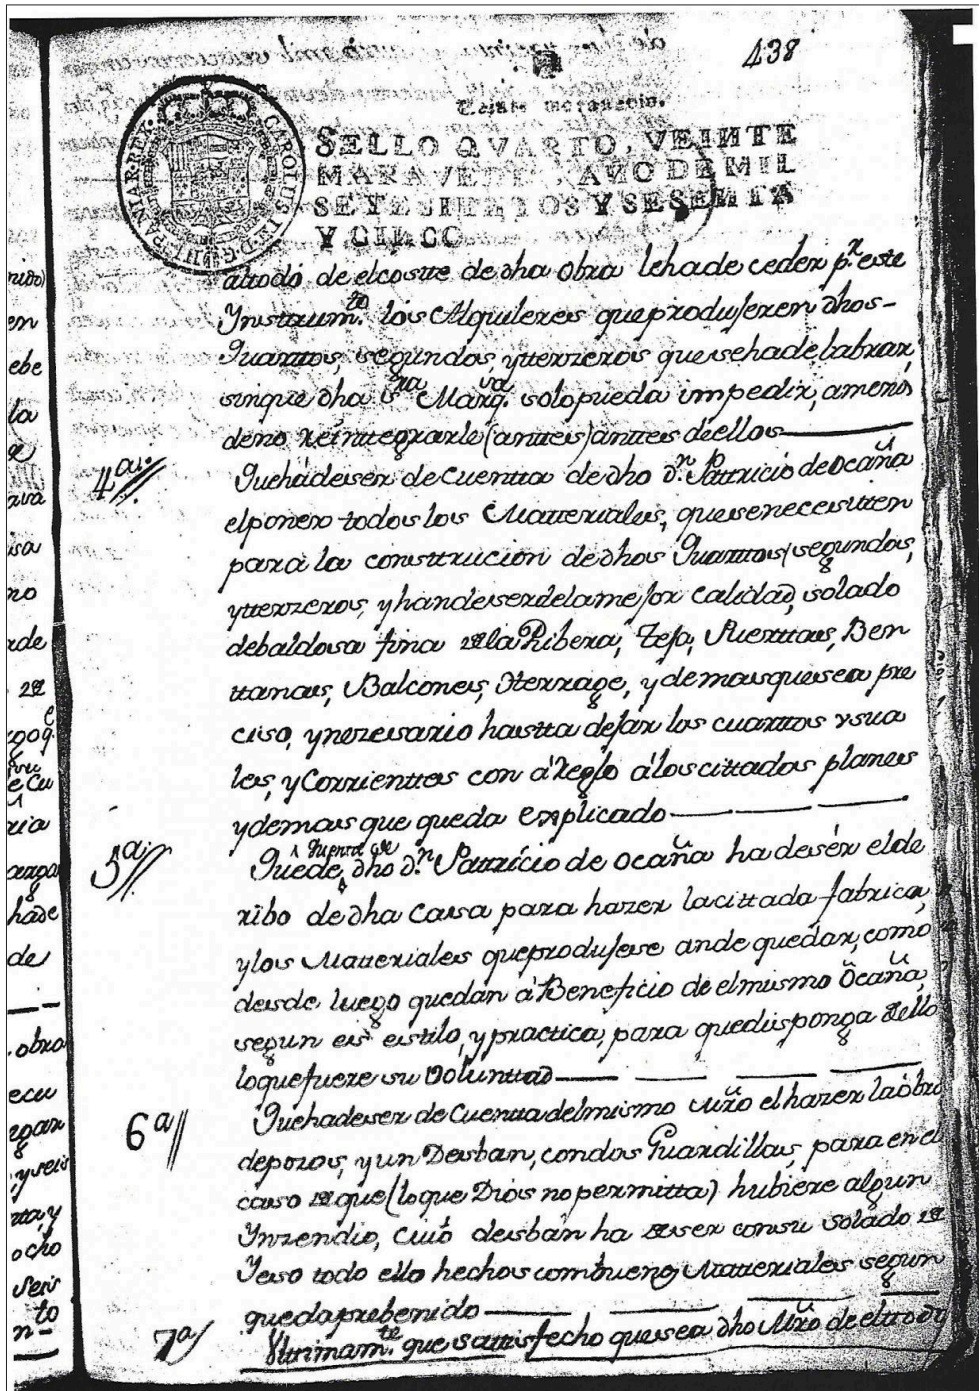 438
Veinte maravedis.
SELLO QVARTO, VEINTE
MARAVEDIS, AÑO DE MIL
SETECIENTOS Y SESENTA
Y CINCO
CAROLUS III D.G. HISPANIAR. REX
attodo de el costte de dha obra le ha de ceder pr. este
Ynstrumto. los Alquileres que produjeren dhos-
Quarttos, segundos, ytterzeros que se ha de labrar,
sinque dha sra. Marqsa. solo pueda impedir, amenos
deno reinttegrarle (anttes) anttes de ellos
4a. Que ha de ser de cuentta de dho Dn. Pattricio de Ocaña
el poner todos los Matteriales, que se necesitten
para la consttrucion de dhos Quarttos segundos,
ytterzeros, y han de ser de la mejor calidad, solado
de baldosa fina de la Ribera, Teja, Puerttas, Ben
ttanas, Balcones, Herrage, y demas que sea pre
ciso, y nezesario hastta dejar los cuarttos vsua
les, y Corrienttes con árreglo á los cittados planes
y demas que queda explicado
5a. Que de quenta de dho Dn. Pattricio de Ocaña ha de sér el de
ribo de dha Casa para hazer la cittada fabrica,
y los Matteriales que produjese an de quedar, como
desde luego quedan á Beneficio de el mismo Ocaña,
segun es estilo, y practica, para que disponga de ello
lo que fuere su Volunttad
6a Que ha de ser de Cuentta del mismo Mro el hazer la óbra
de pozos, y un Desban, con dos Guardillas, para en el
caso de que (lo que Dios no permitta) hubiere algun
Ynzendio, cuió desban ha de ser con su solado de
Yeso todo ello hechos con buenos Matteriales segun
queda prebenido
7a Vltimamte. que sattisfecho que sea dho Mro de el ttodo y